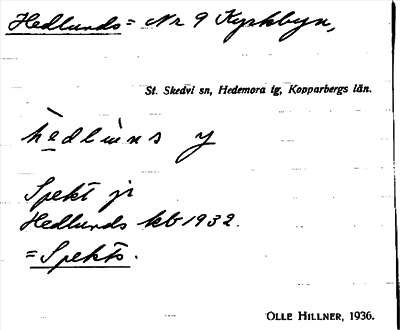 Hedlunds = Nr 9 Kyrkbyn,
St. Skedvi sn, Hedemora tg, Kopparbergs län.
hedluns y
Spekt jr
Hedlunds kb 1932.
= Spekts.
OLLE HILLNER, 1936.